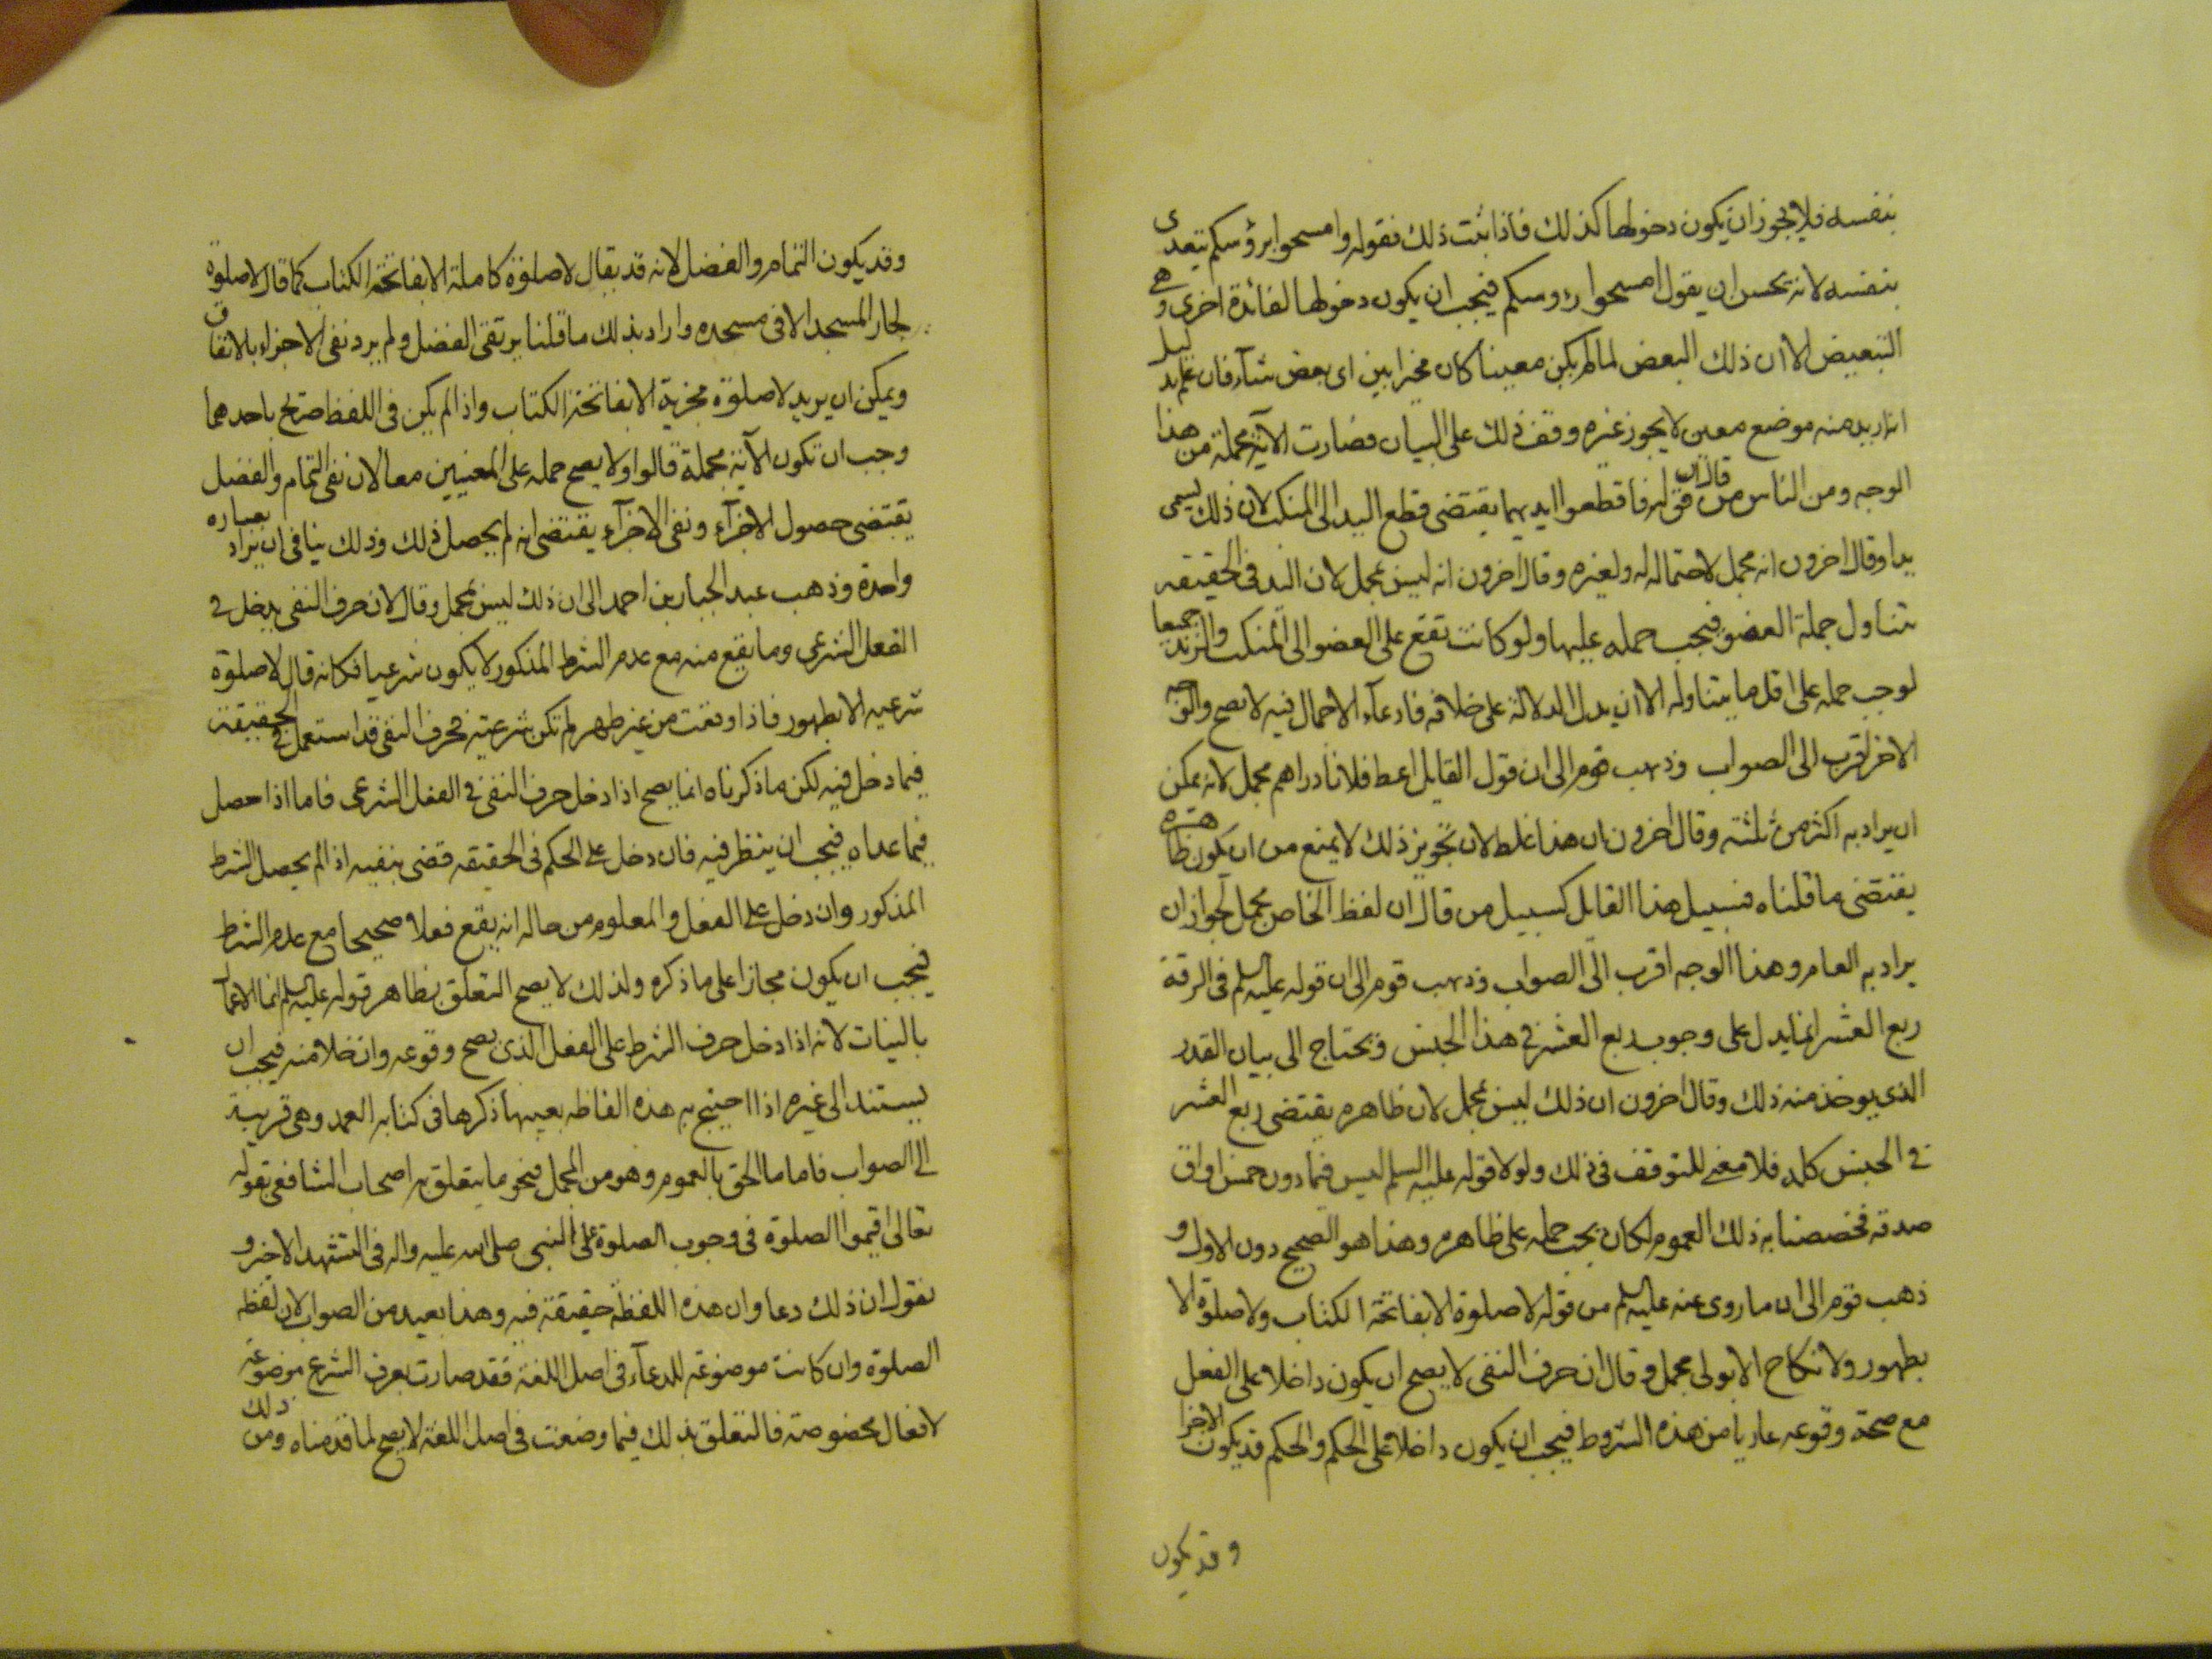 بنفسه فلا يجوز ان يكون دخولها كذلك فاذا ثبت ذلك فقوله وامسحوا برؤسكم يتعدى
بنفسه لانه يحسن ان يقول امسحوا رؤسكم فيجب ان يكون دخولها لفائدة اخرى وهي
التبعيض الا ان ذلك البعض لما لم يكن معينا كان مخيرا بين اى بعض شآء فان علم بدليل
انه اريد منه موضع معين لا يجوز غيره وقف ذلك على البيان فصارت الآية مجملة من هذا
الوجه ومن الناس من قال ان قوله فاقطعوا ايديهما يقتضى قطع اليد الى المنكب لان ذلك يسمى
يدا وقال اخرون انه مجمل لاحتماله له ولغيره وقال اخرون انه ليس بمجمل لان اليد فى الحقيقه
تتناول جملة العضو فيجب حمله عليها ولو كانت تقع على العضو الى المنكب والزند جميعا
لوجب حمله على اقل ما يتناوله الا ان يدل الدلالة على خلافه فادعآء الاجمال فيه لا يصح والوجه
الاخر اقرب الى الصواب وذهب قوم الى ان قول القايل اعط فلانا دراهم مجمل لانه يمكن
ان يراد به اكثر من ثلثة وقال اخرون ان هذا غلط لان تجويز ذلك لا يمنع من ان يكون ظاهره
يقتضى ما قلناه فسبيل هذا القايل كسبيل من قال ان لفظ الخاص مجمل لجواز ان
يراد به العام وهذا الوجه اقرب الى الصواب وذهب قوم الى ان قوله عليه السلم فى الرقة
ربع العشر انما يدل على وجوب ربع العشر فى هذا الجنس ويحتاج الى بيان القدر
الذى يوخذ منه ذلك وقال اخرون ان ذلك ليس بمجمل لان ظاهره يقتضى ربع العشر
فى الجنس كله فلا معنى للتوقف فى ذلك ولولا قوله عليه السلم ليس فيما دون خمس اواق
صدقة فخصصنا به ذلك العموم لكان يجب حمله على ظاهره وهذا هو الصحيح دون الاول و
ذهب قوم الى ان ما روى عنه عليه السلم من قوله لا صلوة الا بفاتحة الكتاب ولا صلوة الا
بطهور ولا نكاح الا بولى مجمل وقال ان حرف النفى لا يصح ان يكون داخلا على الفعل
مع صحة وقوعه عاريا من هذه الشروط فيجب ان يكون داخلا على الحكم والحكم قد يكون الاجزا
وقد يكون
وقد يكون التمام والفضل لانه قد يقال لا صلوة كاملة الا بفاتحة الكتاب كما قال لا صلوة
لجار المسجد الا فى مسجده واراد بذلك ما قلنا بر نفى الفضل ولم يرد نفى الاجزاء بالاتفاق
ويمكن ان يريد لا صلوة مجزية الا بفاتحة الكتاب واذا لم يكن فى اللفظ صريح باحدهما
وجب ان تكون الآية مجملة قالوا ولا يصح حمله على المعنيين معا لان نفى التمام والفضل
يقتضى حصول الاجزآء ونفى الاجزآء يقتضى انه لم يحصل ذلك وذلك ينافى ان يراد بعباره
واحدة وذهب عبد الجبار بن احمد الى ان ذلك ليس بمجمل وقال لان حرف النفى يدخل فى
الفعل الشرعى وما يقع منه مع عدم الشرط المذكور لا يكون شرعيا فكانه قال لا صلوة
شرعيه الا بطهور فاذا وقعت من غير طهر لم تكن شرعية فحرف النفى قد استعمل فى الحقيقة
فيما دخل فيه لكن ما ذكرناه انما يصح اذا دخل حرف النفى فى الفعل الشرعى فاما اذا حصل
فيما عداه فيجب ان ينظر فيه فان دخل على الحكم فى الحقيقه قضى بنفيه اذا لم يحصل الشرط
المذكور وان دخل على الفعل والمعلوم من حاله انه يقع فعلا صحيحا مع عدم الشرط
فيجب ان يكون مجازا على ما ذكره ولذلك لا يصح التعلق بظاهر قوله عليه السلم انما الاعمال
بالنيات لانه اذا دخل حرف الشرط على الفعل الذى يصح وقوعه وان خلا منه فيجب ان
يستند الى غيره اذا احتج به هذه الفاظه بعينها ذكرها فى كتابه العمد وهى قريبة
الى الصواب فاما ما الحق بالعموم وهو من المجمل فنحو ما يتعلق به اصحاب الشافعى بقوله
تعالى اقيموا الصلوة فى وجوب الصلوة على النبى صلى الله عليه واله فى التشهد الاخير و
نقول ان ذلك دعا وان هذه اللفظة حقيقة فيه وهذا بعيد من الصواب لان لفظه
الصلوة وان كانت موضوعة للدعآء فى اصل اللغة فقد صارت بعرف الشرع موضوعه
لافعال مخصوصة فالتعلق بذلك فيما وضعت فى اصل اللغة لا يصح لما قدمناه ومن ذلك